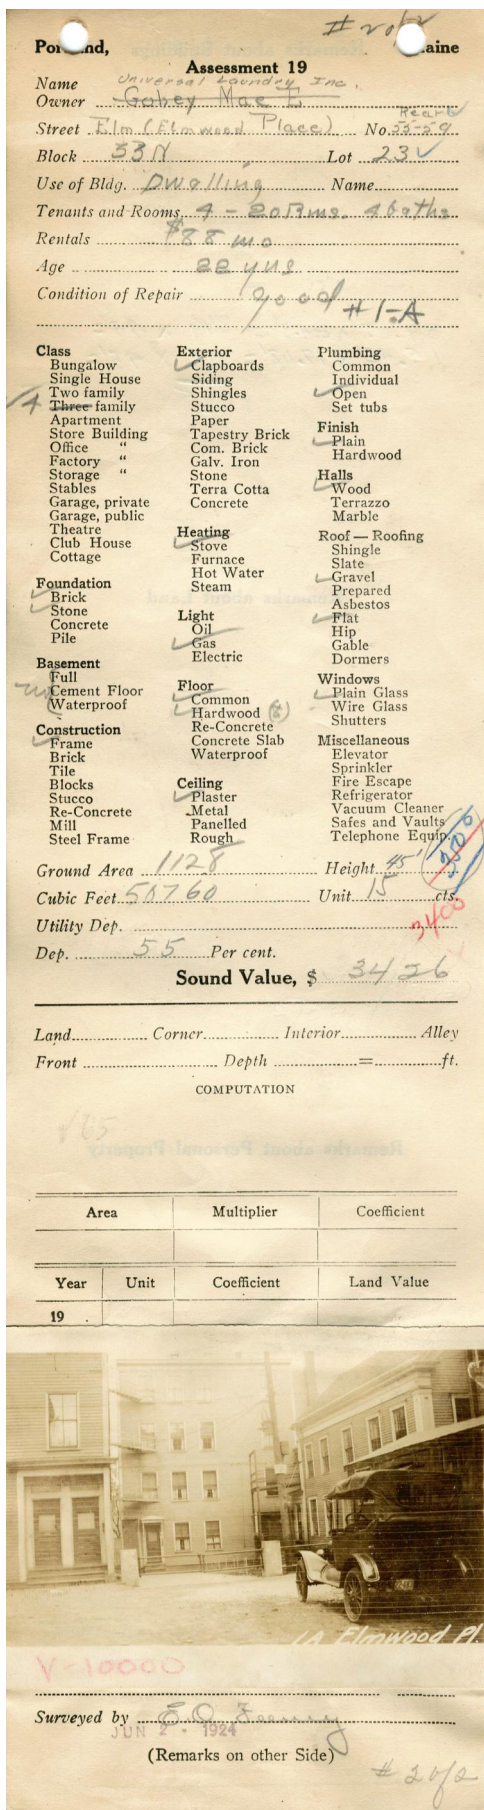 # 2 of 2
Portland, Maine
Assessment 19
Universal Laundry Inc.
Name
Owner Gobey Mae E
Rear
Street Elm (Elmwood Place) No. 55-59
Block 33N Lot 23
Use of Bldg. Dwelling Name
Tenants and Rooms 4 - 20 Rms. 4 baths
Rentals $88 mo
Age 22 yrs
Condition of Repair good
#1-A
Class
Bungalow
Single House
Two family
4 Three family
Apartment
Store Building
Office "
Factory "
Storage "
Stables
Garage, private
Garage, public
Theatre
Club House
Cottage
Foundation
Brick
Stone
Concrete
Pile
Basement
Full
Cement Floor
Waterproof
Construction
Frame
Brick
Tile
Blocks
Stucco
Re-Concrete
Mill
Steel Frame
Exterior
Clapboards
Siding
Shingles
Stucco
Paper
Tapestry Brick
Com. Brick
Galv. Iron
Stone
Terra Cotta
Concrete
Heating
Stove
Furnace
Hot Water
Steam
Light
Oil
Gas
Electric
Floor
Common
Hardwood
Re-Concrete
Concrete Slab
Waterproof
Ceiling
Plaster
Metal
Panelled
Rough
Plumbing
Common
Individual
Open
Set tubs
Finish
Plain
Hardwood
Halls
Wood
Terrazzo
Marble
Roof — Roofing
Shingle
Slate
Gravel
Prepared
Asbestos
Flat
Hip
Gable
Dormers
Windows
Plain Glass
Wire Glass
Shutters
Miscellaneous
Elevator
Sprinkler
Fire Escape
Refrigerator
Vacuum Cleaner
Safes and Vaults
Telephone Equip.
3500
Ground Area 1128 Height 45'
Cubic Feet 50760 Unit 15 cts.
Utility Dep.
3400
Dep. 55 Per cent.
Sound Value, $ 3426
Land Corner Interior Alley
Front Depth = ft.
COMPUTATION
Area Multiplier Coefficient
Year Unit Coefficient Land Value
19
1A Elmwood Pl.
V-10000
Surveyed by
JUN 2 - 1924
(Remarks on other Side)
# 2 of 2